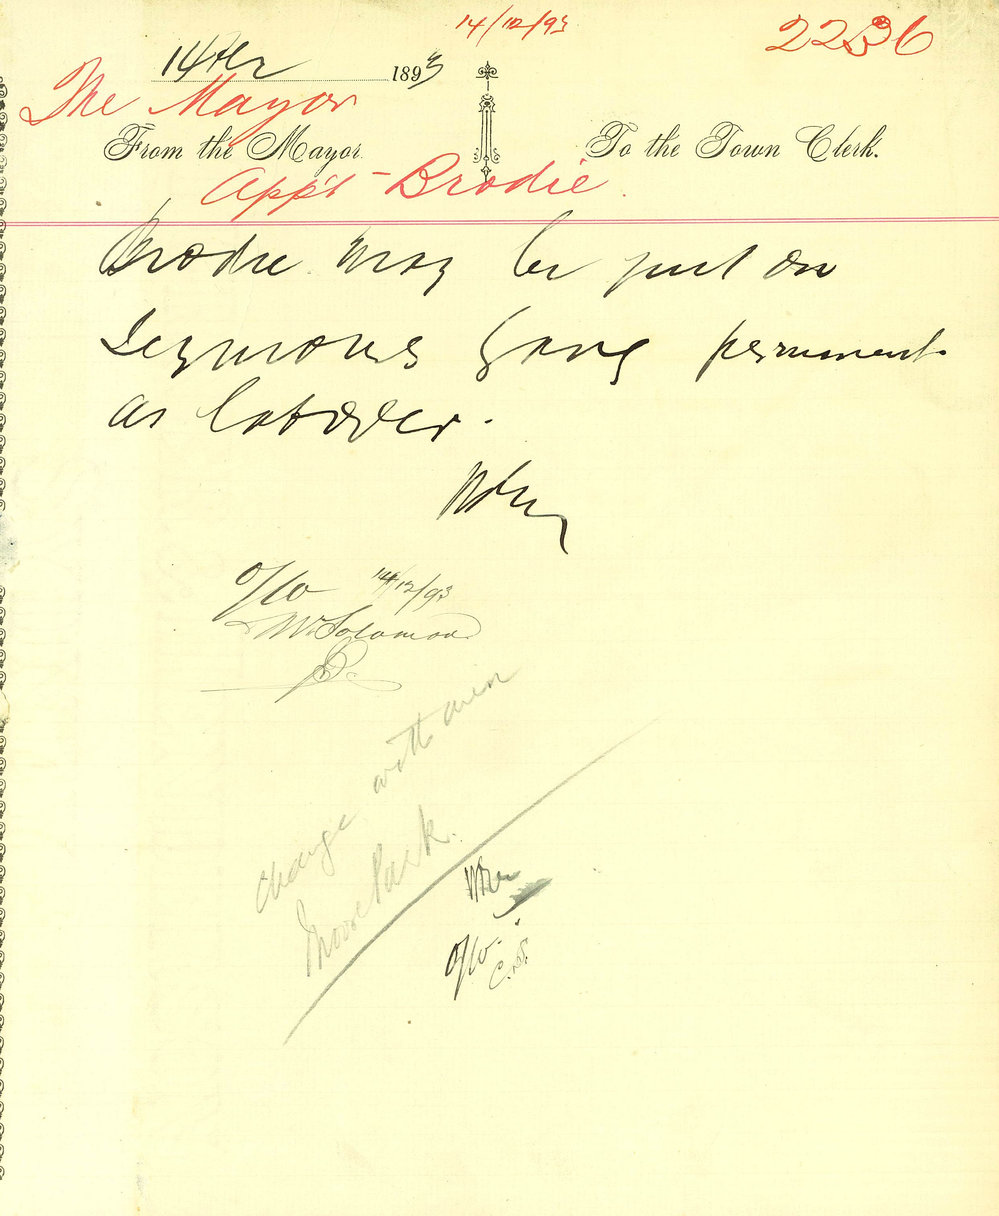 14/12/93
2236
14 Dec 1893
The Mayor
From the Mayor To the Town Clerk.
App't - Brodie
Brodie may be put on
Seymours Gang permanent
as labourer.
O/W 14/12/93
W Solomon
change with men
Moore Park.
O/W.
C.S.